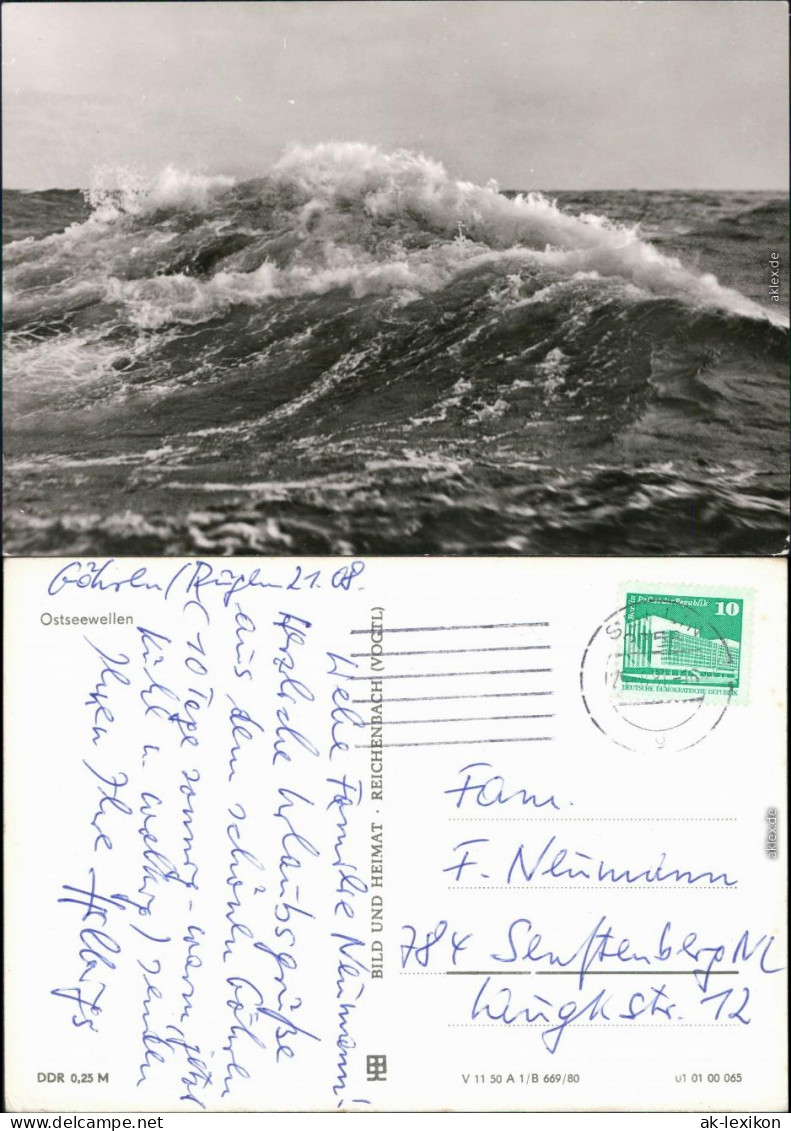 aklex.de
Göhren/Rügen 21.08.
Ostseewellen
Liebe Familie Neumann!
Herzliche Urlaubsgrüße
aus dem schönen Göhren
(10 Tage sonnig-warm, jetzt
kühl u. wolkig) senden
Ihnen Ihre
BILD UND HEIMAT · REICHENBACH (VOGTL)
Berlin, Palast der Republik 10
DEUTSCHE DEMOKRATISCHE REPUBLIK
Fam.
F. Neumann
784 Senftenberg NL
12
aklex.de
DDR 0,25 M
V 11 50 A 1/B 669/80
01 01 00 065
ak-lexikon